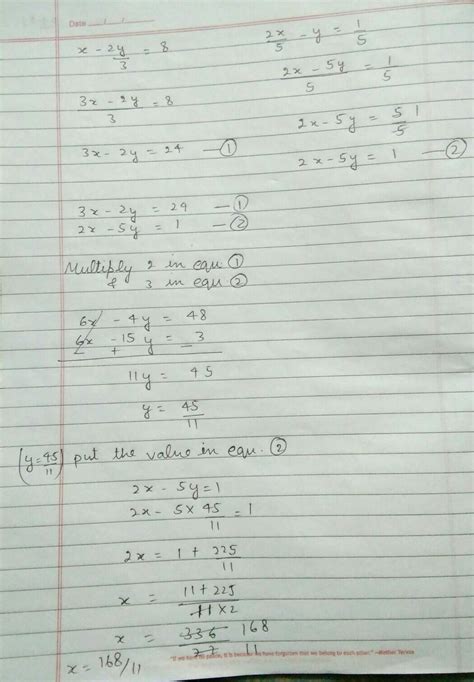 Date __/__/__
x - 2y/3 = 8
(3x - 2y)/3 = 8
3x - 2y = 24 — ①
2x/5 - y = 1/5
(2x - 5y)/5 = 1/5
2x - 5y = 5/5 1
2x - 5y = 1 — ②
3x - 2y = 24 — ①
2x - 5y = 1 — ②
Multiply 2 in equ ①
& 3 in equ ②
6x - 4y = 48
6x - 15y = 3
- + -
11y = 45
y = 45/11
(y = 45/11) put the value in equ. ②
2x - 5y = 1
2x - 5 × 45/11 = 1
2x = 1 + 225/11
x = (11 + 225)/(11 × 2)
x = 336/22 168/11
x = 168/11
"If we have no peace, it is because we have forgotten that we belong to each other." –Mother Teresa